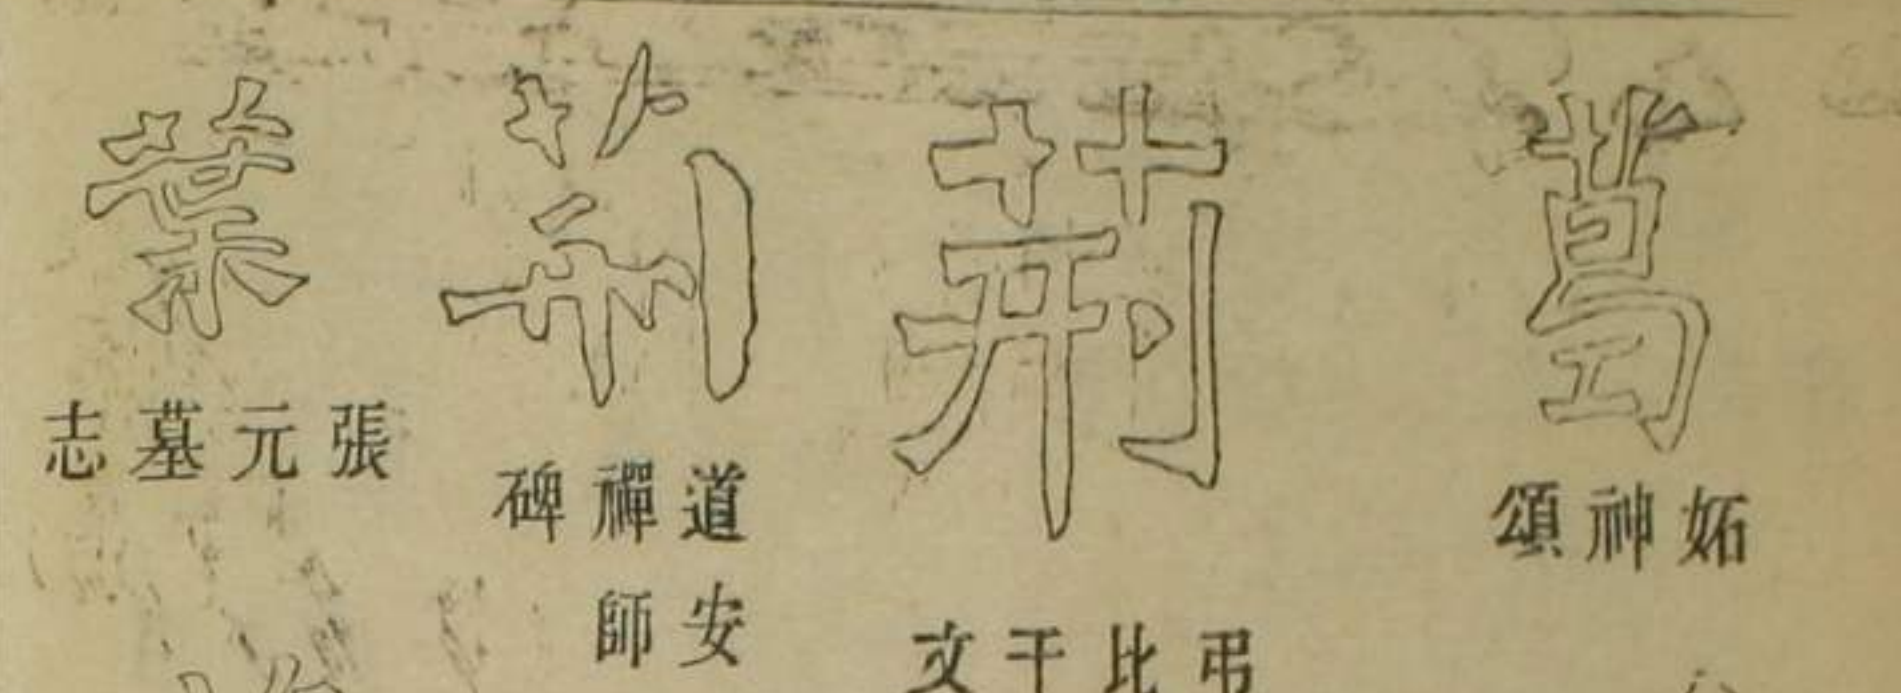 葛
妬神頌
荊
弔比干文
荊
道安
禪師
碑
葉
張元墓志